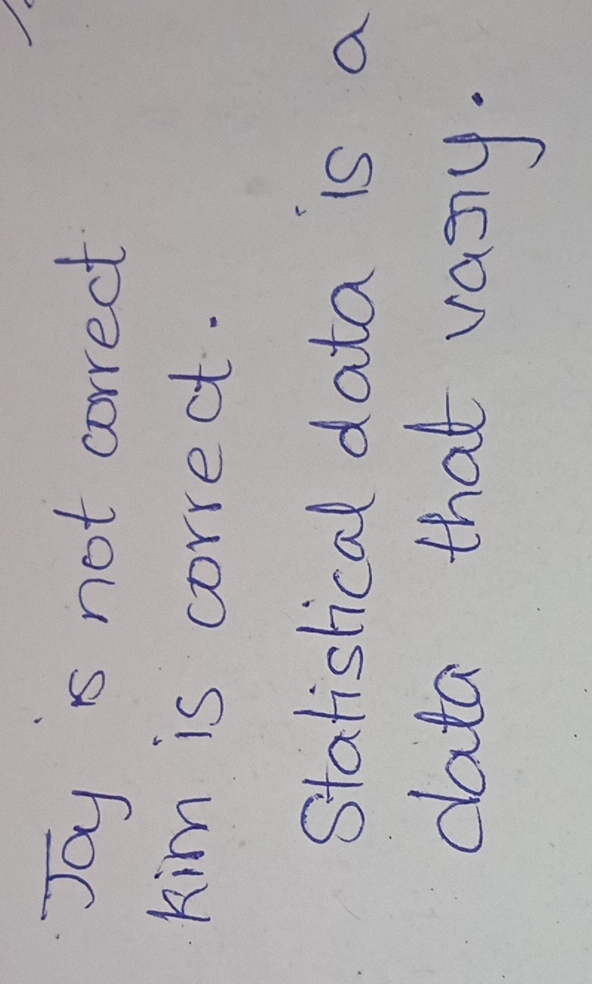 Jay is not correct
Kim is correct.
Statistical data is a
data that vary.